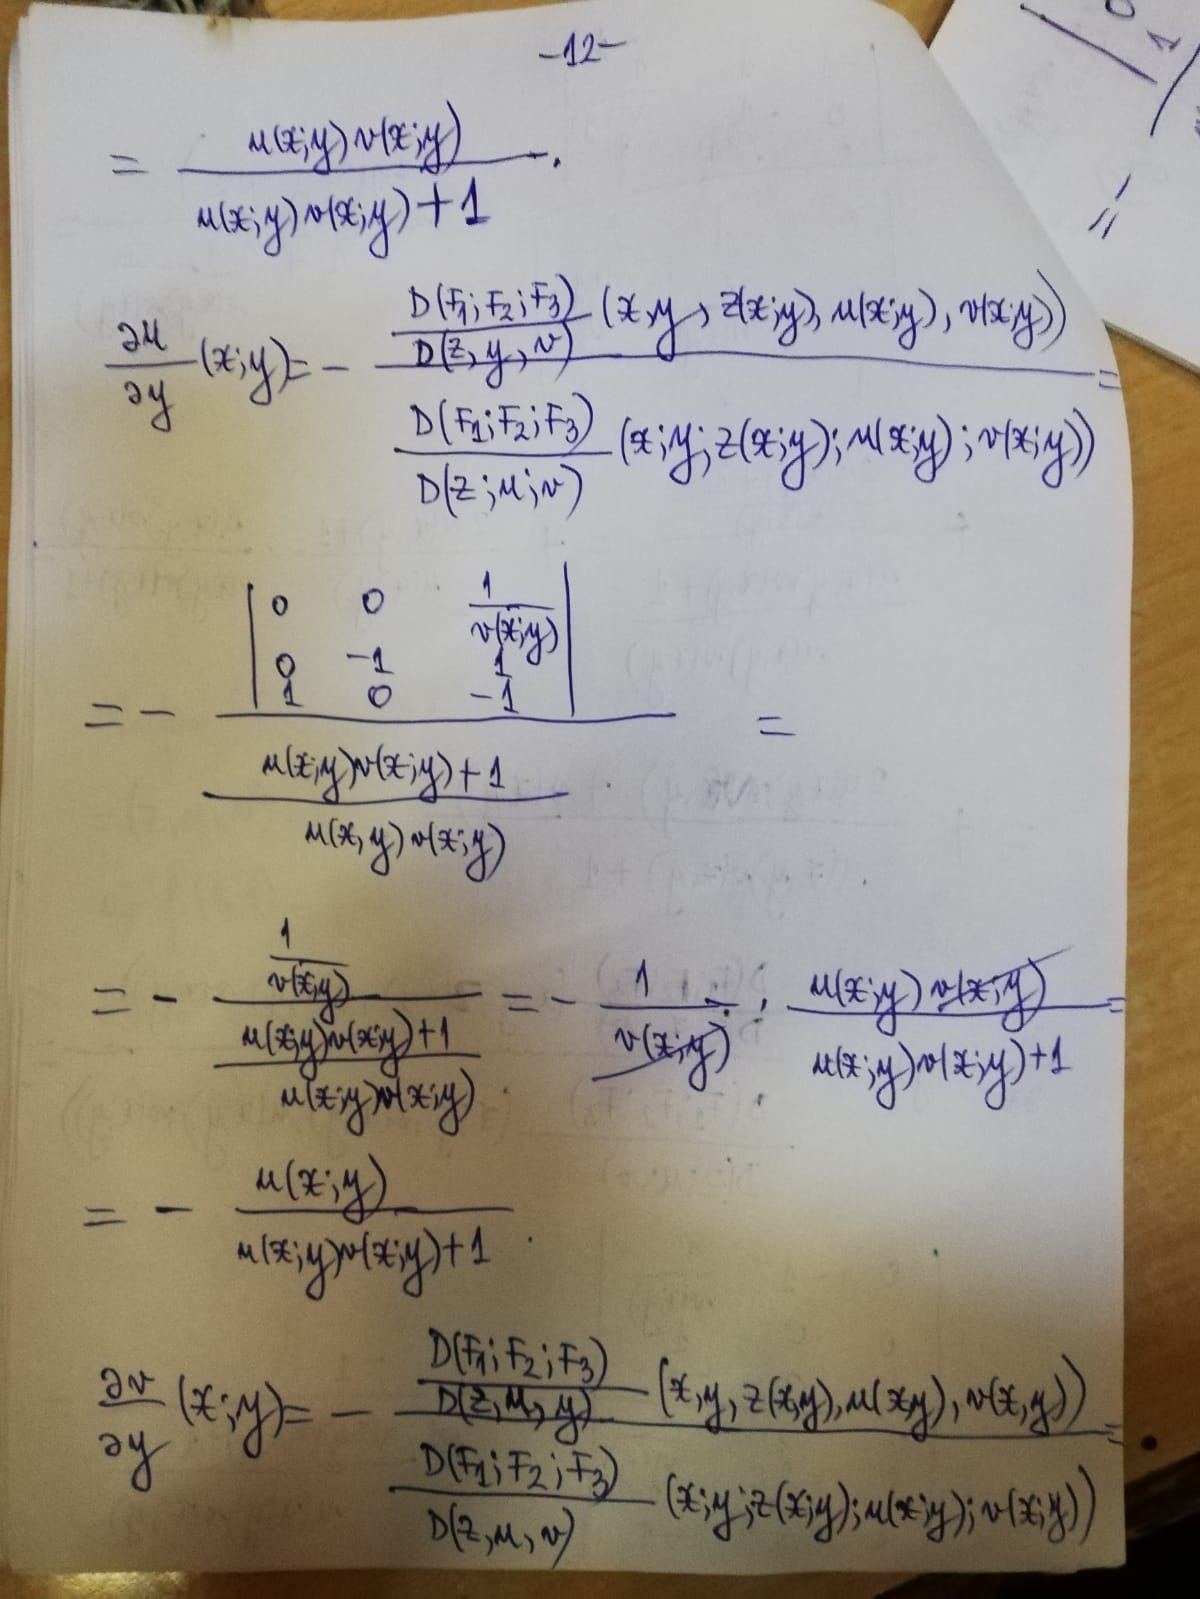 -12-
= u(x;y)v(x;y) / u(x;y)v(x;y)+1 .
∂u/∂y (x;y) = - D(F1;F2;F3)/D(z,y,v) (x,y,z(x;y),u(x;y),v(x;y)) / D(F1;F2;F3)/D(z;u;v) (x;y;z(x;y);u(x;y);v(x;y)) =
= - | 0 0 1/v(x;y)
0 -1 1
1 0 -1 | / u(x;y)v(x;y)+1 / u(x,y)v(x;y) =
= - 1/v(x;y) / u(x;y)v(x;y)+1 / u(x;y)v(x;y) = - 1/v(x;y) · u(x;y)v(x;y) / u(x;y)v(x;y)+1 =
= - u(x;y) / u(x;y)v(x;y)+1 .
∂v/∂y (x;y) = - D(F1;F2;F3)/D(z,u,y) (x,y,z(x,y),u(x,y),v(x,y)) / D(F1;F2;F3)/D(z,u,v) (x;y;z(x;y);u(x;y);v(x;y)) =